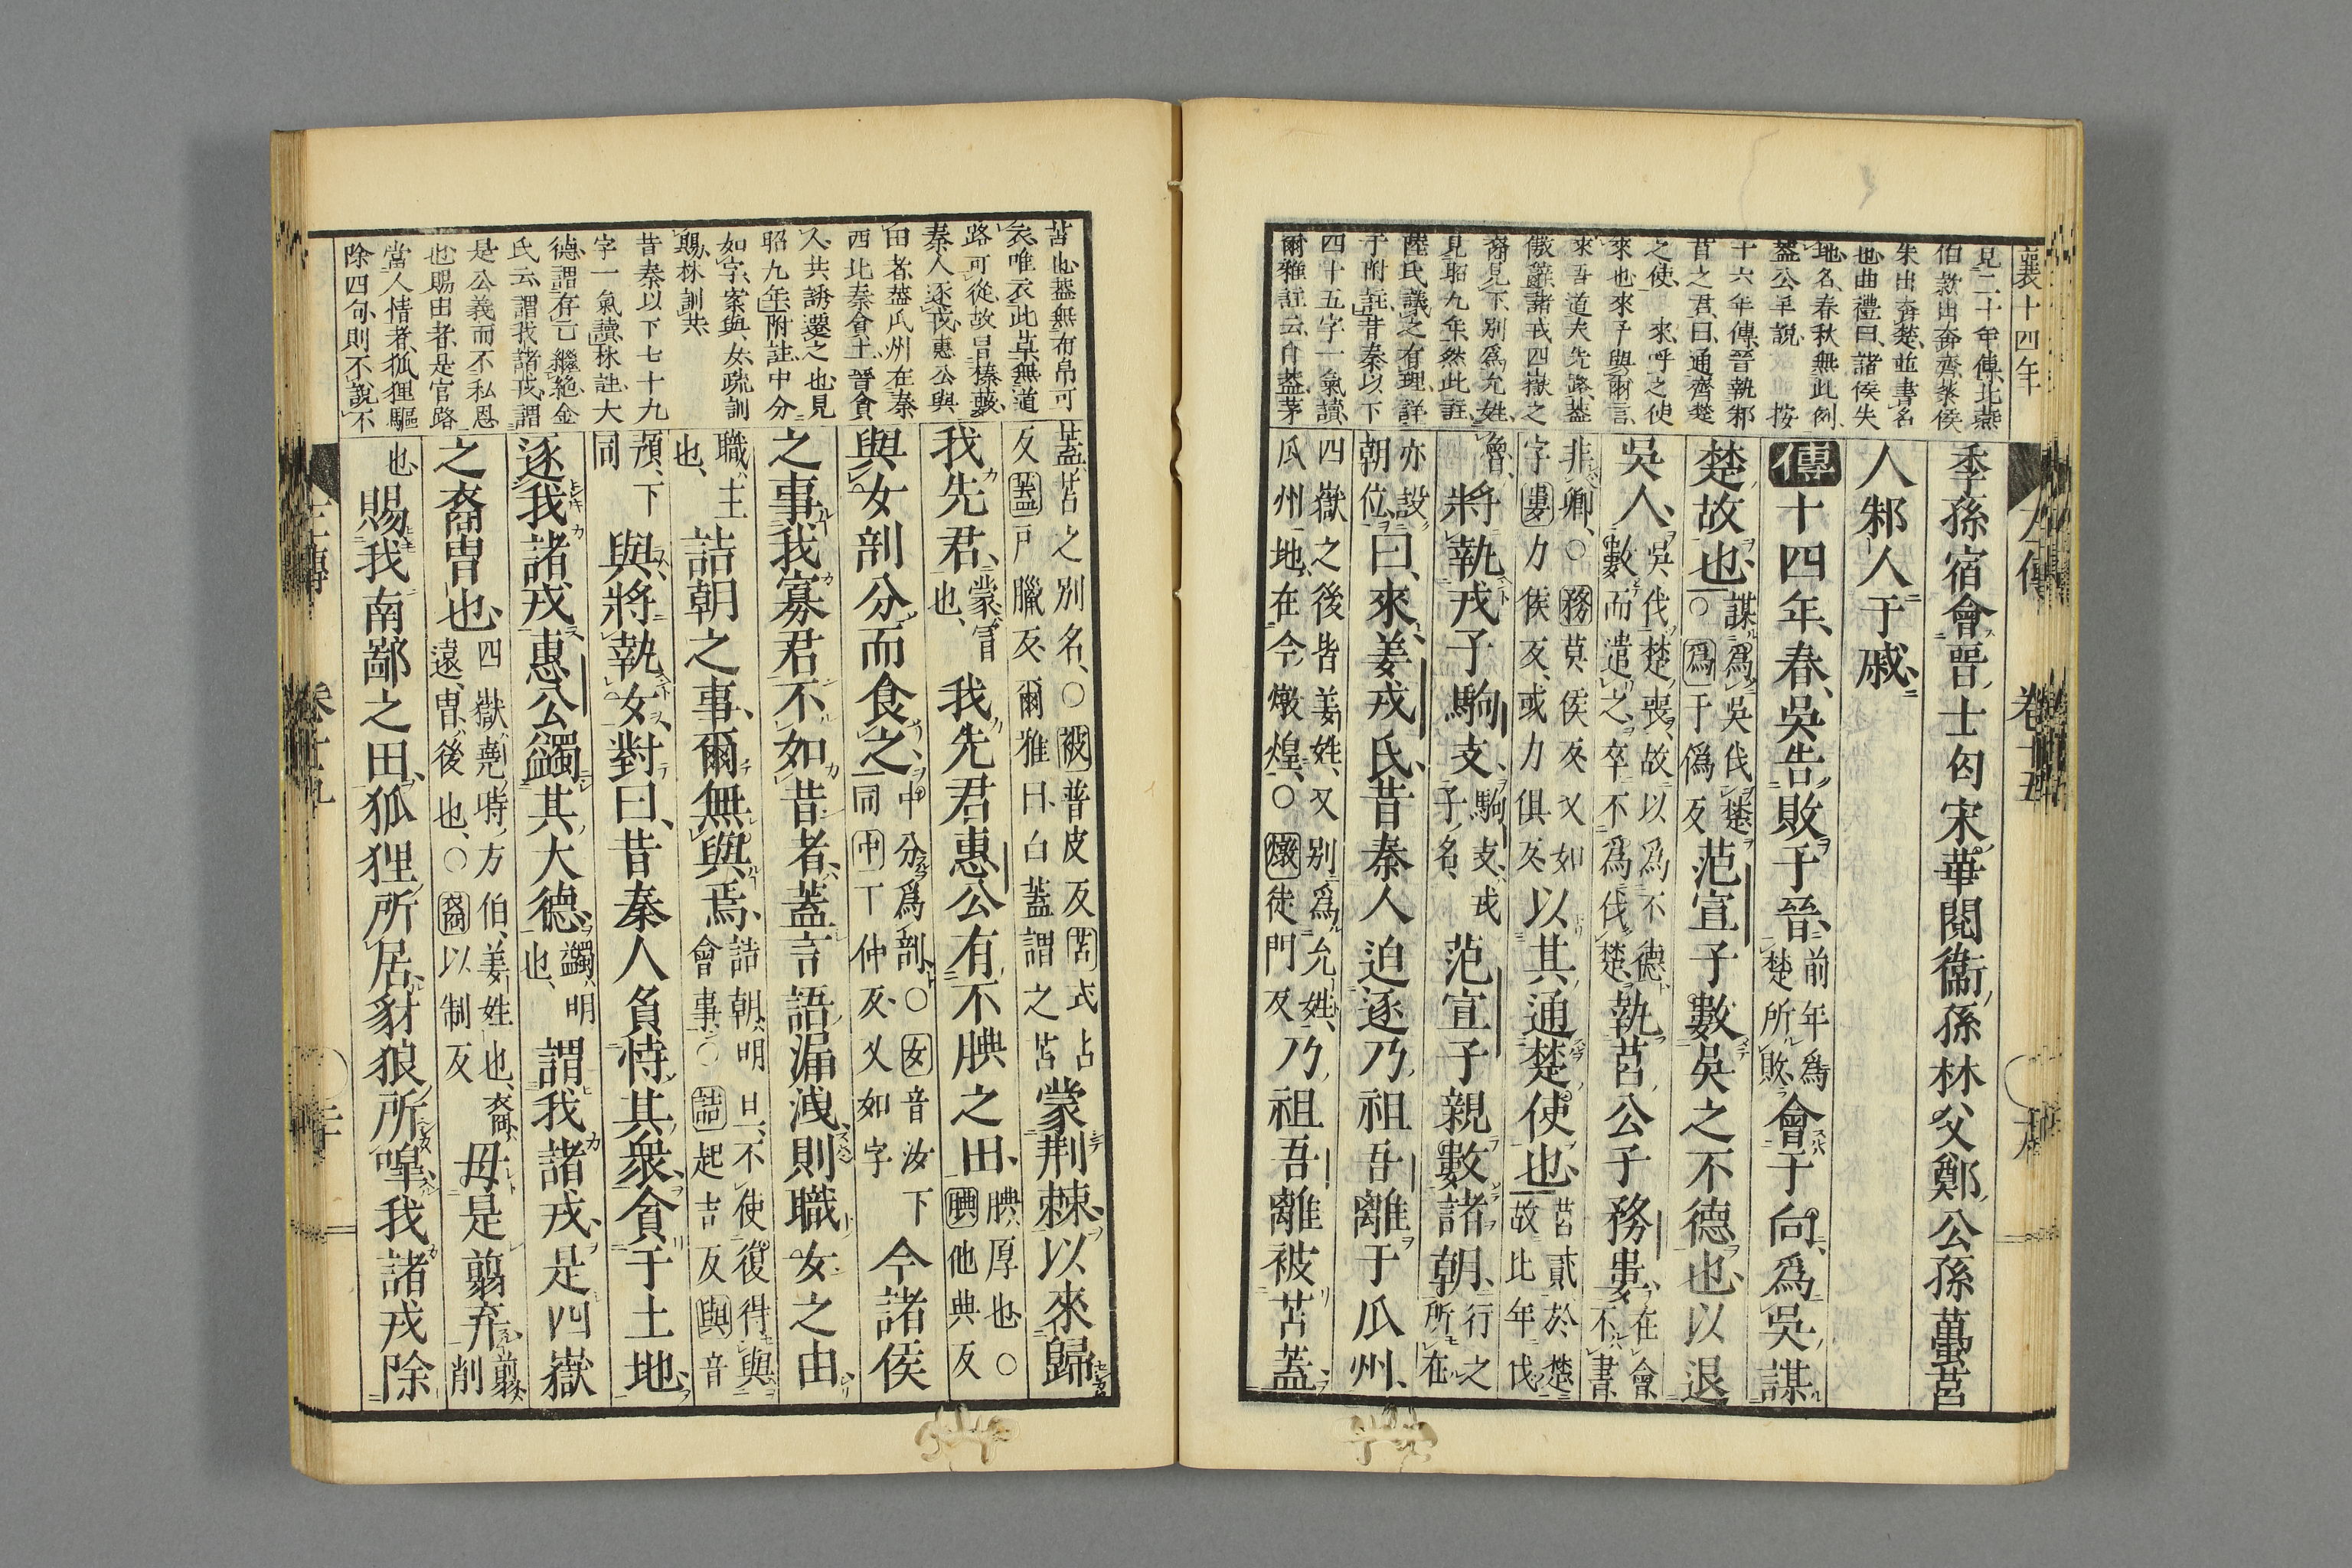 襄十四年
見二十年傳北燕
伯款出奔齊蔡侯
朱出奔楚並書名
也曲禮曰諸侯失
地名春秋無此例
蓋公羊說 按
十六年傳晉執邾
莒之君曰通齊楚
之使 來呼之使
來也來予與爾言
來吾道夫先路蓋
傲辭諸戎四嶽之
裔見下別爲允姓
見昭九年然此註
陸氏議之有理詳
于附註昔秦以下
四十五字一氣讀
爾雅註云白蓋茅
季孫宿會晉士匄宋華閱衞孫林父鄭公孫蠆莒
人邾人于戚
傳十四年春吳告敗于晉前年爲楚所敗會于向爲吳謀
楚故也謀爲吳伐楚○爲于僞反范宣子數吳之不德也以退
吳人吳伐楚喪故以爲不德數而遣之卒不爲伐楚執莒公子務婁在會不書
非卿○務莫侯反又如字婁力侯反或力俱反以其通楚使也莒貳於楚故比年伐
魯將執戎子駒支駒支戎子名范宣子親數諸朝行之所在
亦設朝位曰來姜戎氏昔秦人迫逐乃祖吾離于瓜州
四嶽之後皆姜姓又別爲允姓瓜州地在今燉煌○燉徒門反乃祖吾離被苫蓋
苫也蓋無布帛可
衣唯衣此草無道
路可從故冒榛藪
秦人逐戎惠公與
田者蓋氏州在秦
西北秦會土晉貪
人共誘遷之也見
昭九年附註中分
如字案與女疏訓
賜林訓共
昔秦以下七十九
字一氣讀林註大
德謂存亡繼絕金
氏云謂我諸戎謂
是公義而不私恩
也賜田者是官路
當人情者狐狸驅
除四句則不說不
蓋苫之別名○被普皮反苫式占反蓋戸臘反爾雅曰白蓋謂之苫蒙荆棘以來歸
我先君蒙冒也我先君惠公有不腆之田腆厚也○腆他典反
與女剖分而食之中分爲剖○女音汝下同中丁仲反又如字今諸侯
之事我寡君不如昔者蓋言語漏洩則職女之由
職主也詰朝之事爾無與焉詰朝明旦不使復得與會事○詰起吉反與音
預下同與將執女對曰昔秦人負恃其衆貪于土地
逐我諸戎惠公蠲其大德蠲明也謂我諸戎是四嶽
之裔冑也四嶽堯時方伯姜姓也裔遠冑後也○裔以制反毋是翦弃翦削
也賜我南鄙之田狐狸所居豺狼所嘷我諸戎除